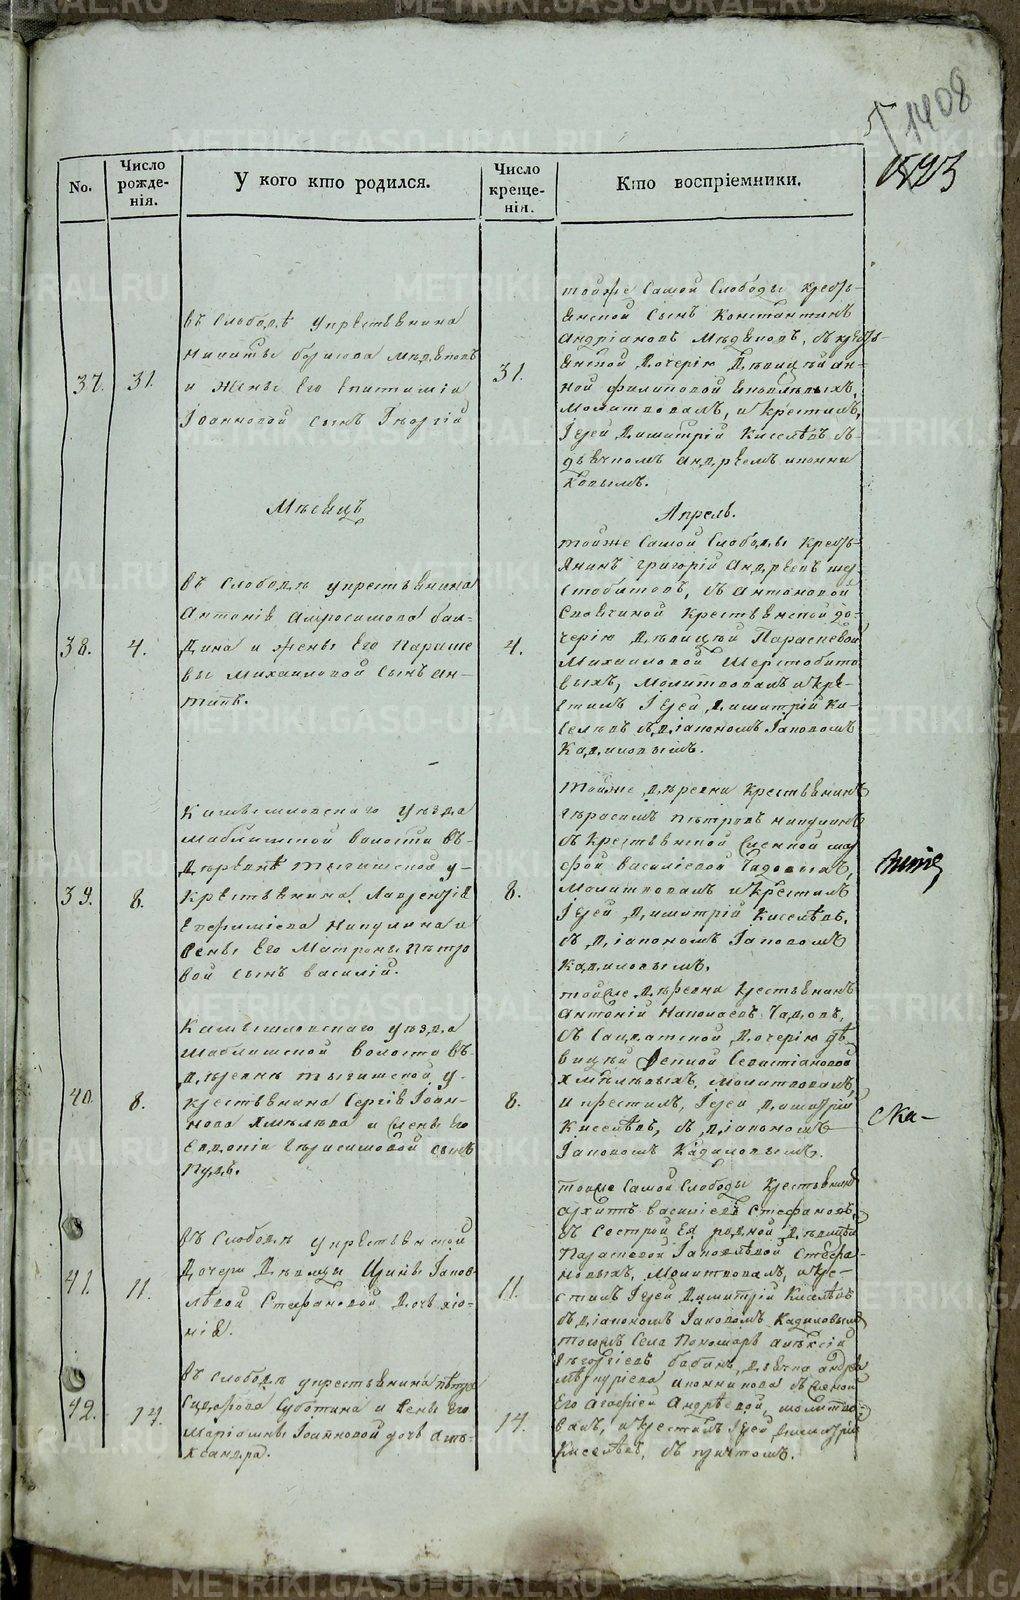 1408
No.
Число рожде-нія.
У кого кто родился.
Число креще-нія.
Кто воспріемники.
37.
31.
въ Слободѣ укрестьянина
Никиты борисова Мѣдѣновъ
и Жены Его Епитиміи
Іоанновой сынъ Георгій
31.
тойже Самой Слободы Кресть-
янской Сынъ Константинъ
Андріановъ Мѣдѣновъ, Съ кресть-
янской Дочерію Дѣвицѣй ан-
ной филиповой
Молитвовалъ, и крестилъ,
Іерей Димитрій Киселѣвъ Съ
дьячкомъ андрѣемъ икон-
ковымъ.
Мѣсяцъ
Апрель.
38.
4.
въ Слободѣ укрестьянина
Антонія Амросимова бал-
дина и жены Его Параске
вы Михаиловой Сынъ Ан-
типъ.
4.
тойже Самой Слободы Кресть-
янинъ григорій Андрѣевъ ше
стобитовъ, Съ
Крестьянской до-
черію Дѣвицѣй Параскевой
Михаиловой Шерстобито
выхъ, Молитвовалъ и кре-
стилъ Іерей Димитрій Ки-
селѣвъ Съ Діакономъ Іаковомъ
Кадиловымъ.
39.
8.
Камышловскаго Уѣзда
шаблишской волости въ
Дѣревнѣ тыгишской у-
Крестьянина Лаврентія
Евфиміева Никулина и
Жены Его Матроны Пѣтро
вой Сынъ василій.
8.
тойже Дѣревни Крестьянинъ
гѣрасимъ пѣтровъ никулинъ
Съ Крестьянской Женкой мар
фой василіевой Чадовыхъ,
Молитвовалъ и крестилъ
Іерей Димитрій Киселѣвъ,
Съ Діакономъ Іаковомъ
Кадиловымъ.
40.
8.
Камышловскаго уѣзда
шаблишской волости въ
Дѣревнѣ тыгишской у-
крестьянина Сергія Іоан-
нова Хмѣлѣва и Жены Его
Евдокіи Гѣрасимовой сынъ
Пудъ.
8.
тойже Дѣревни крестьянинъ
Антоній Николаевъ Чадовъ,
Съ Салдатской Дочерію дѣ
вицѣй Феклой Севастіановой
Хмѣлѣвыхъ, молитвовалъ,
и крестилъ, Іерей Димитрій
Киселѣвъ, Съ Діакономъ
Іаковомъ Кадиловымъ.
Ска-
41.
11.
въ Слободѣ укрестьянской
Дочери Дѣвицы Ирины Іаков-
лѣвой Стефановой Дочь хіо-
нія.
11.
тойже Самой Слободы Крестьянинъ
архипъ василіевъ Стефановъ,
Съ Сестрой Ея родной Дѣвицѣй
Параскевой Іаковлѣвой Стефа-
новыхъ, Молитвовалъ, и кре-
стилъ Іерей Димитрій Киселѣвъ
Съ Діакономъ Іаковомъ Кадиловымъ
42.
14.
въ Слободѣ укрестьянина пѣтра
Сидорова Суботина и Жены Его
Маріамны Іоанновой дочь Але-
ксандра.
14.
тогожъ Села Пономарь алексій
Гѣоргіевъ бабинъ, Дьячка андрея
мѣркуріева иконникова Съ Женой
Его Агафіей Андрѣевой, молитво-
валъ, и крестилъ Іерей Димитрій
Киселѣвъ, Съ причтомъ.